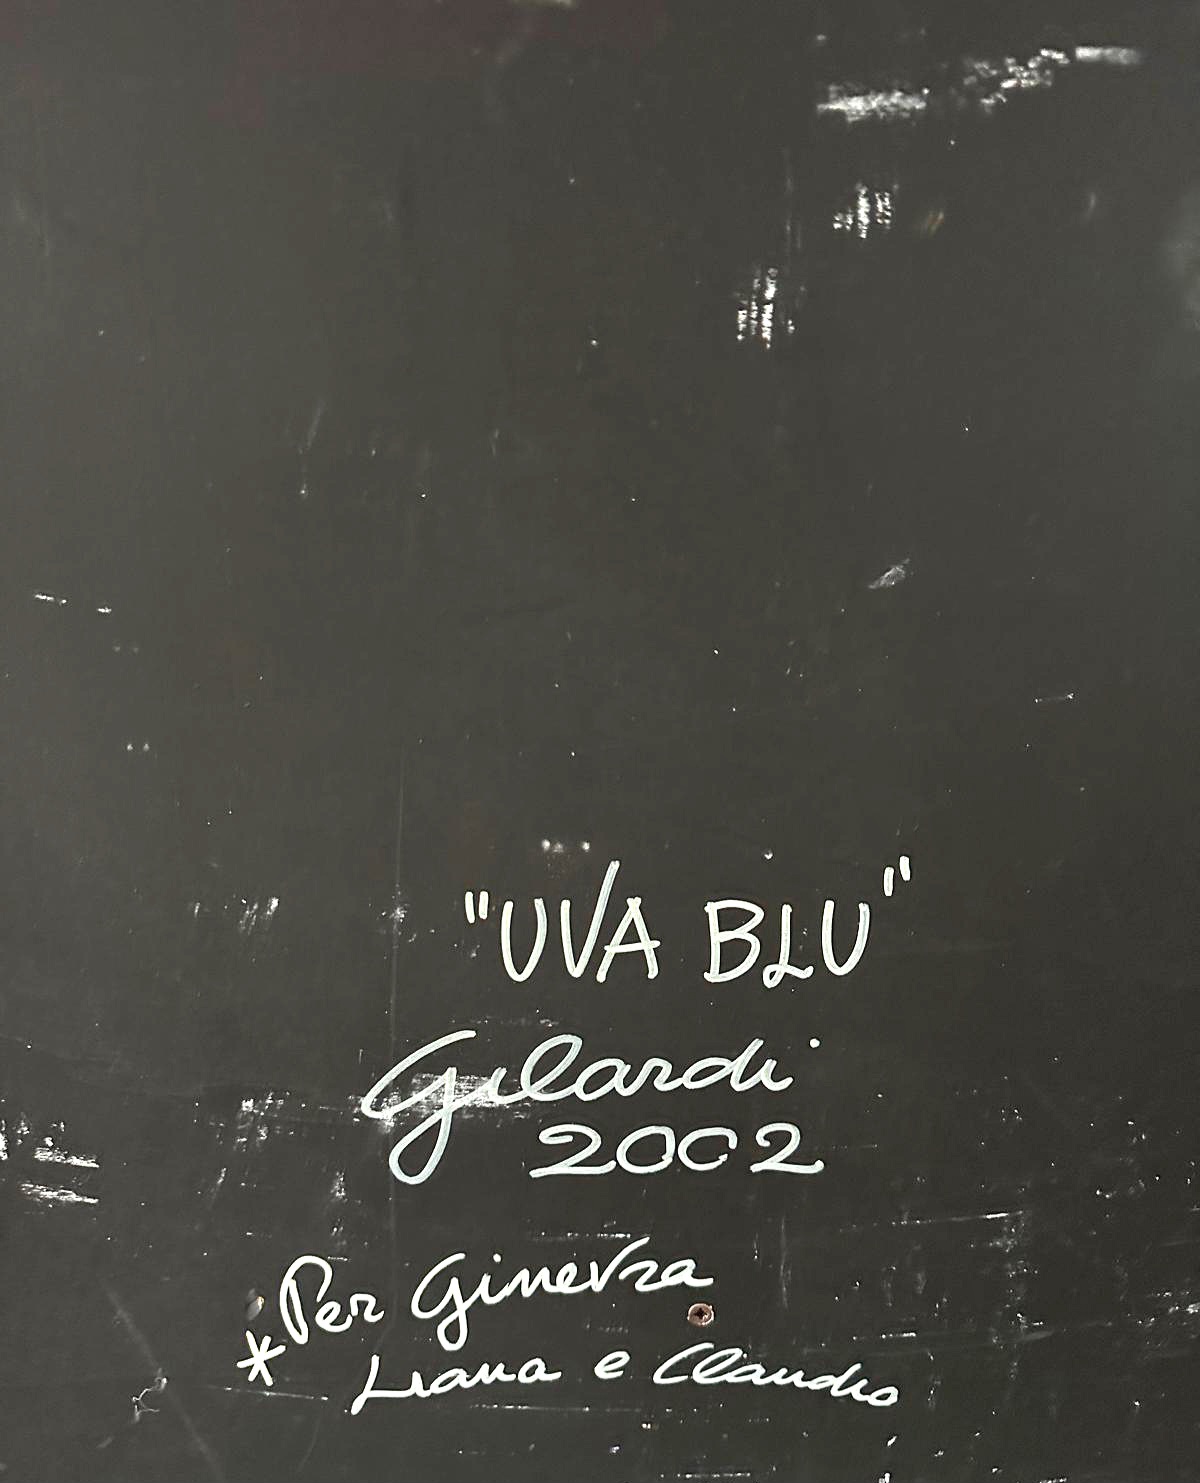 "UVA BLU"
Gilardi
2002
*Per Ginevra
Liana e Claudio